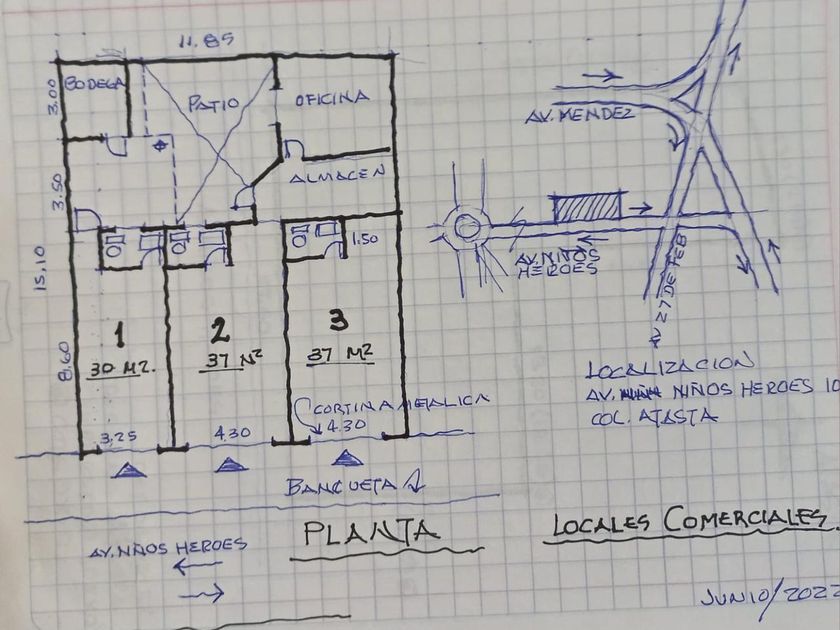 11.85
3.00
BODEGA
PATIO
OFICINA
ALMACEN
3.50
15.10
1.50
8.60
1
30 M2.
2
37 M2
3
37 M2
CORTINA METALICA
3,25
4.30
4.30
BANQUETA
AV. NIÑOS HEROES
PLANTA
AV. MENDEZ
AV. NIÑOS
HEROES
AV 27 DE FEB
LOCALIZACION
AV. NIÑOS HEROES 10
COL. ATASTA
LOCALES COMERCIALES.
JUNIO/2022